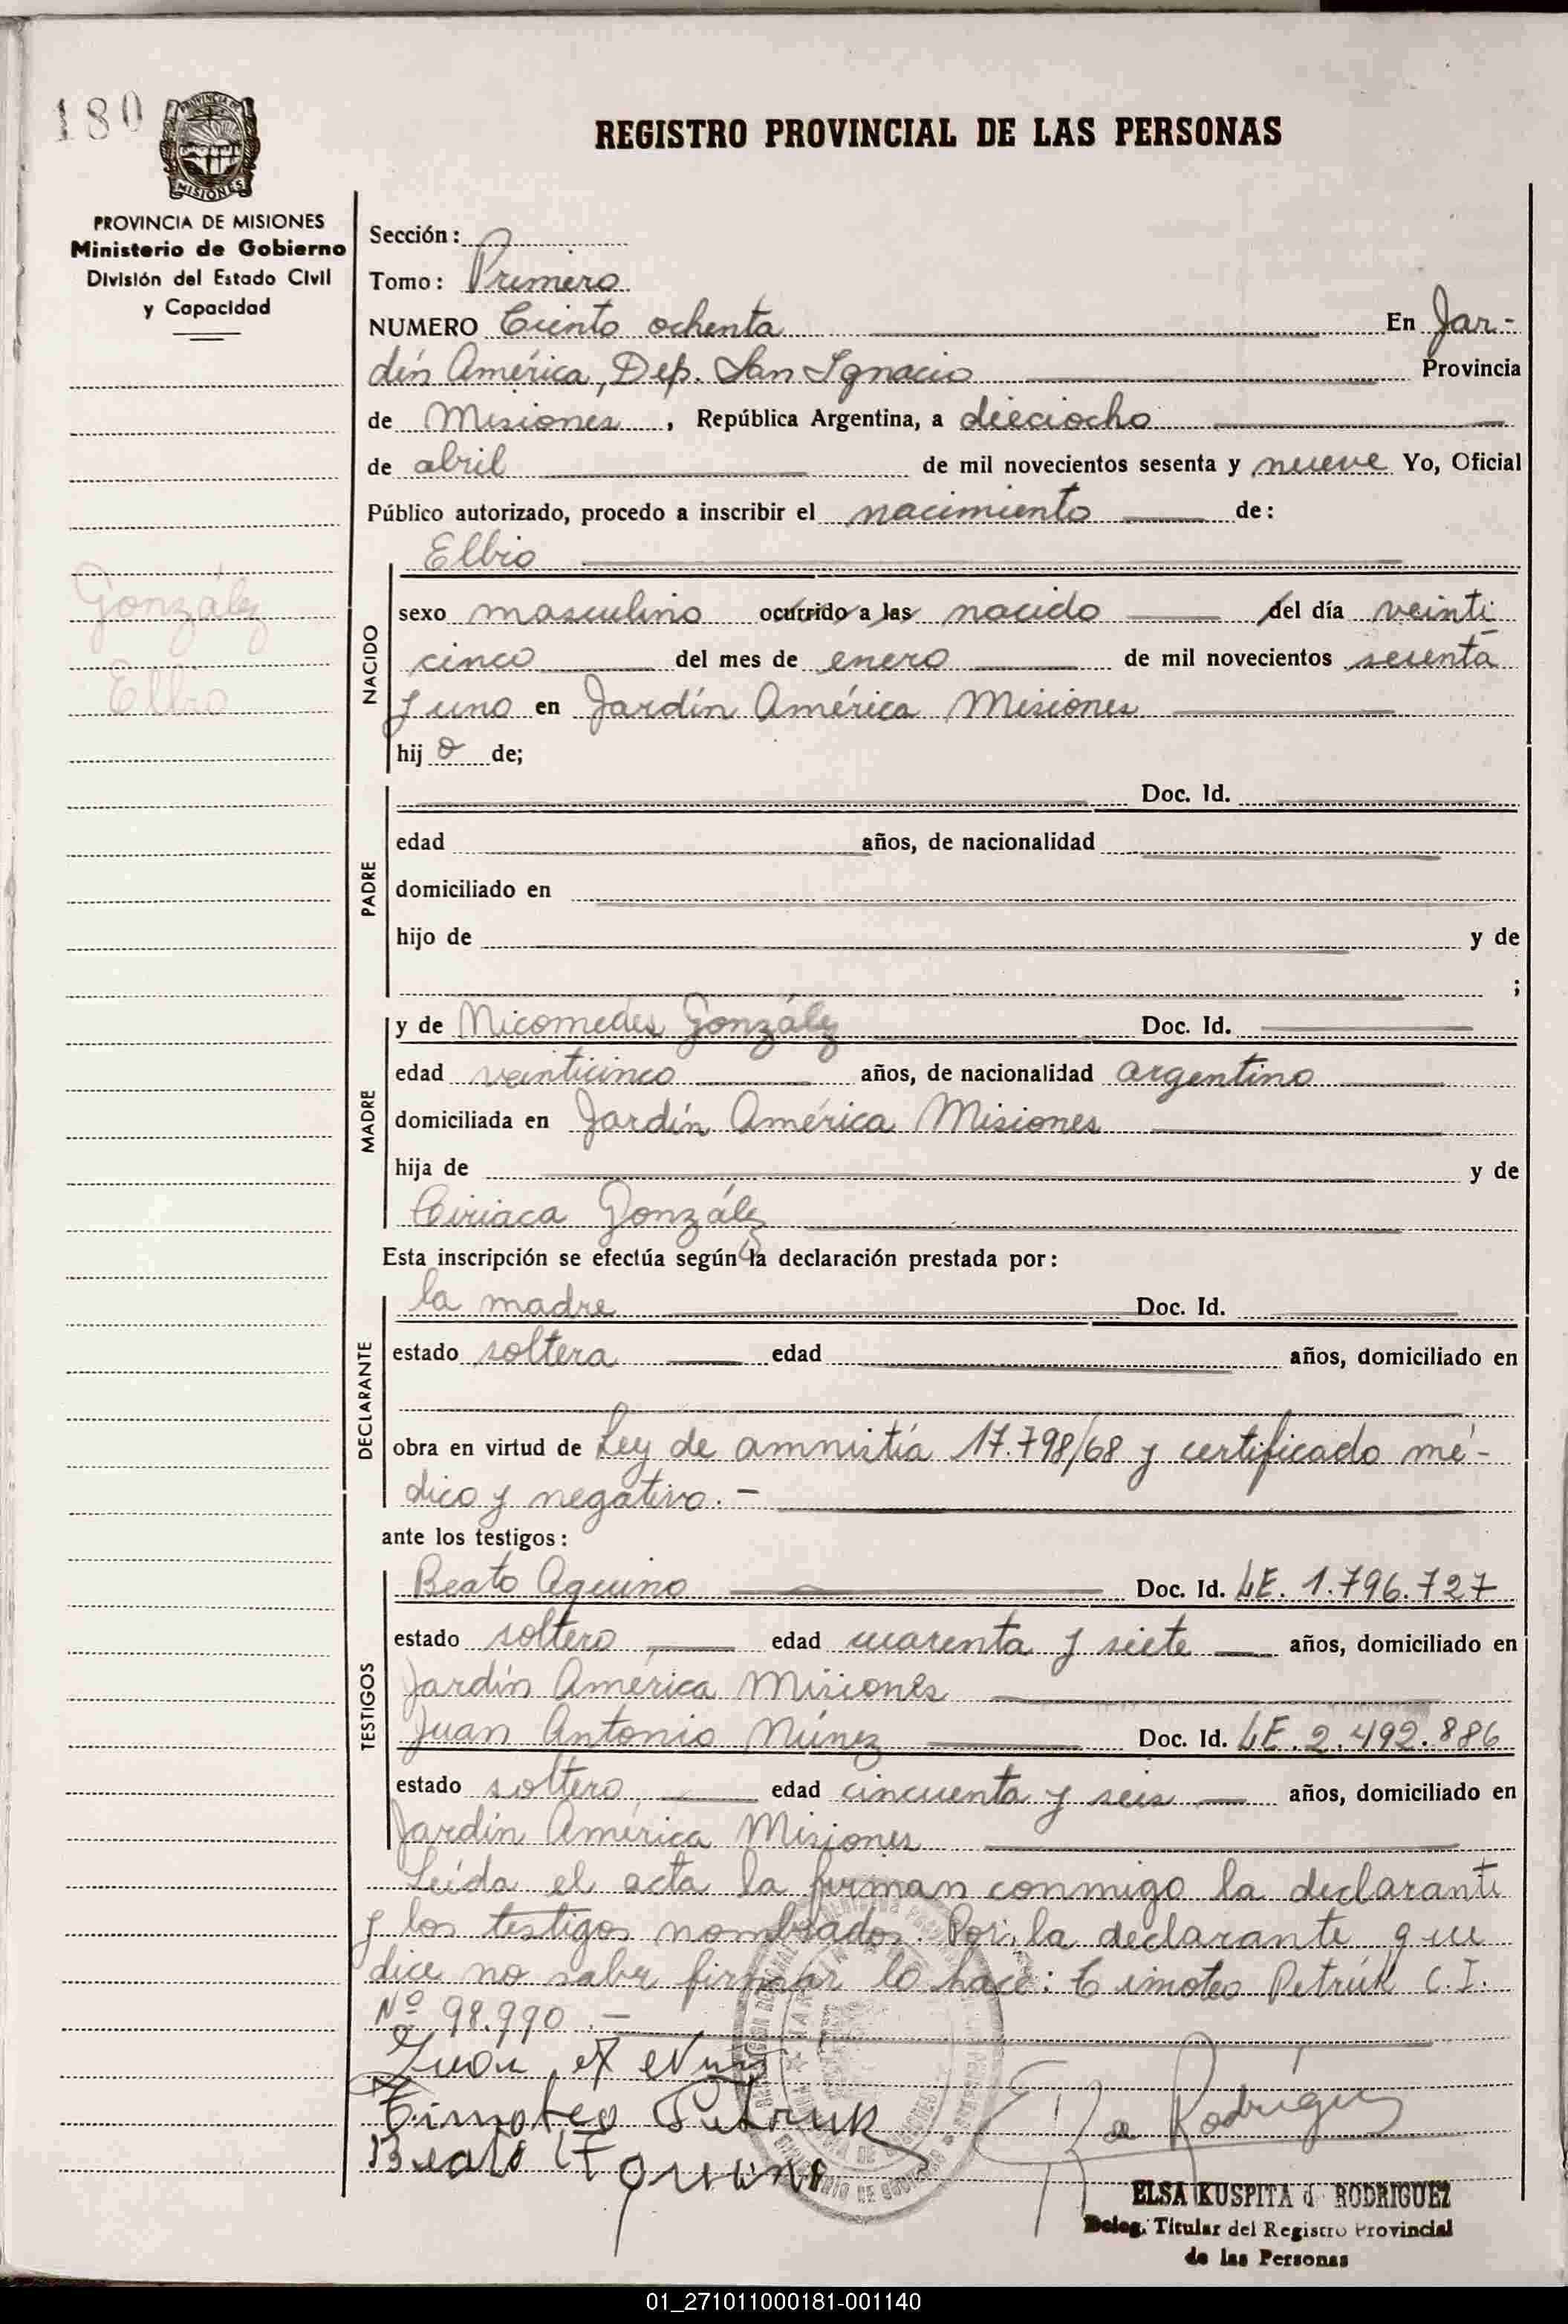 180
PROVINCIA DE MISIONES
Ministerio de Gobierno
División del Estado Civil
y Capacidad
González
Elbio
REGISTRO PROVINCIAL DE LAS PERSONAS
Sección:
Tomo: Primero
NUMERO Ciento ochenta En Jar-
dín América, Dep. San Ignacio Provincia
de Misiones, República Argentina, a dieciocho
de abril de mil novecientos sesenta y nueve Yo, Oficial
Público autorizado, procedo a inscribir el nacimiento de:
Elbio
NACIDO
sexo masculino ocurrido a las nacido del día veinti
cinco del mes de enero de mil novecientos sesenta
y uno en Jardín América Misiones
hij o de;
PADRE
Doc. Id.
edad años, de nacionalidad
domiciliado en
hijo de y de
;
MADRE
y de Nicomedes González Doc. Id.
edad veinticinco años, de nacionalidad argentino
domiciliada en Jardín América Misiones
hija de y de
Ciriaca González
Esta inscripción se efectúa según la declaración prestada por:
DECLARANTE
la madre Doc. Id.
estado soltera edad años, domiciliado en
obra en virtud de Ley de amnistía 17.798/68 y certificado mé-
dico y negativo.-
ante los testigos:
TESTIGOS
Beato Aquino Doc. Id. LE. 1.796.727
estado soltero edad cuarenta y siete años, domiciliado en
Jardín América Misiones
Juan Antonio Núnez Doc. Id. LE. 2.492.886
estado soltero edad cincuenta y seis años, domiciliado en
Jardín América Misiones
Leída el acta la firman conmigo la declarante
y los testigos nombrados. Por la declarante que
dice no saber firmar lo hace: Timoteo Petruk C.I.
Nº 98.990.-
Juan
Timoteo Petruk
Beato
Rodríguez
ELSA KUSPITA d RODRIGUEZ
Deleg. Titular del Registro Provincial
de las Personas
01_271011000181-001140